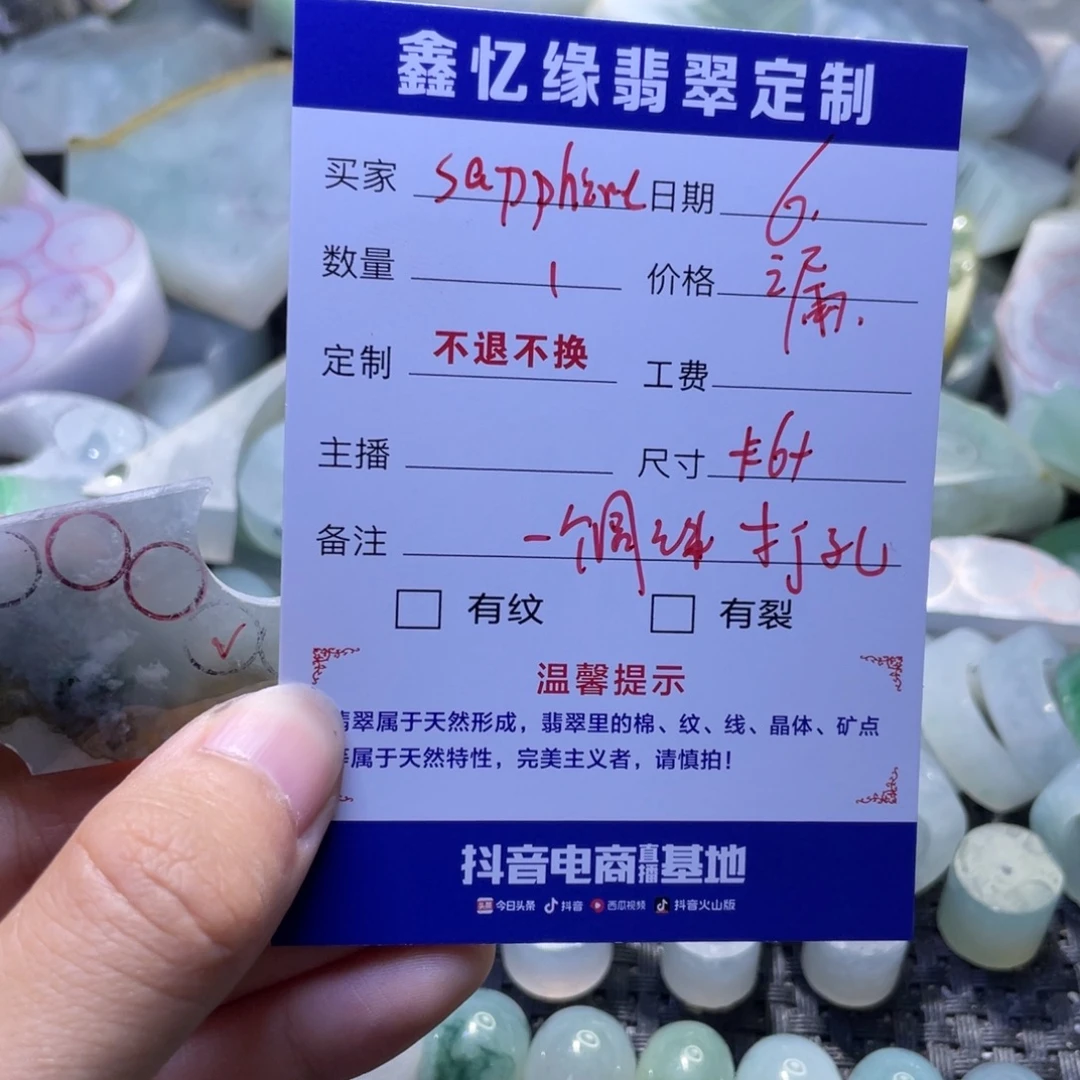 鑫忆缘翡翠定制
买家 sapphire 日期 6.
数量 1 价格 漏.
定制 不退不换 工费
主播 尺寸 卡6+
备注 一个圆珠 打孔
有纹 有裂
温馨提示
翡翠属于天然形成，翡翠里的棉、纹、线、晶体、矿点
等属于天然特性，完美主义者，请慎拍！
抖音电商直播基地
头条 今日头条 抖音 西瓜视频 抖音火山版